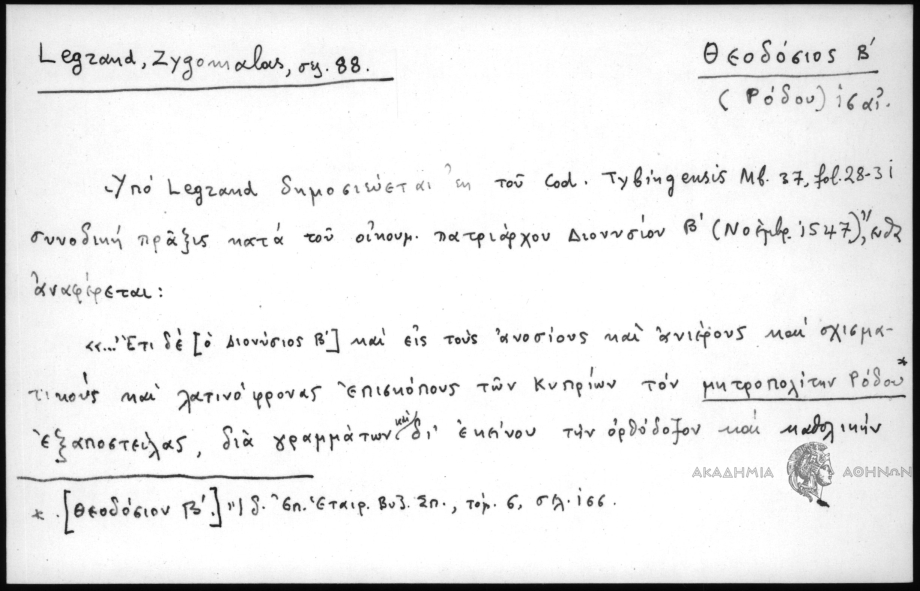 Legrand, Zygomalas, σελ. 88.
Θεοδόσιος Β΄
(Ρόδου) ις αἰ.
Ὑπό Legrand δημοσιεύεται ἐκ τοῦ Cod. Tybingensis Mb. 37, fol. 28-31
συνοδική πρᾶξις κατά τοῦ οἰκουμ. πατριάρχου Διονυσίου Β΄ (Νοέμβρ. 1547), ἔνθα
ἀναφέρεται:
«...Ἔτι δέ [ὁ Διονύσιος Β΄] καί εἰς τούς ἀνοσίους καί ἀνιέρους καί σχισμα-
τικούς καί λατινόφρονας ἐπισκόπους τῶν Κυπρίων τόν μητροπολίτην Ρόδου*
ἐξαποστείλας, διά γραμμάτων καί δι' ἐκείνου τήν ὀρθόδοξον καί καθολικήν
ΑΚΑΔΗΜΙΑ ΑΘΗΝΩΝ
* [Θεοδόσιον Β΄.] Ἐπ. Ἑταιρ. Βυζ. Σπ., τόμ. 6, σελ. 166.